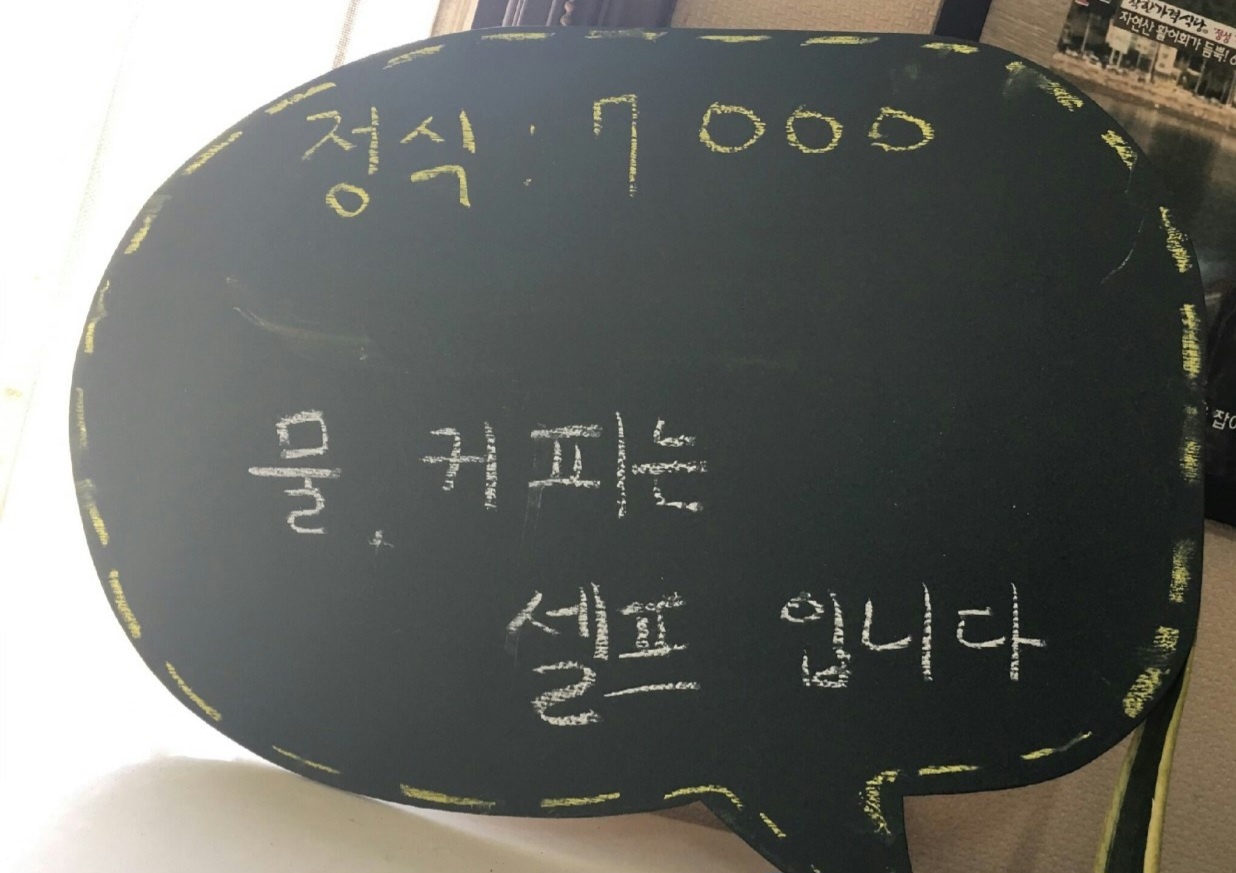 정식 : 7000
물, 커피는
셀프 입니다
착한가격식당
자연산 활어회가 듬뿍!